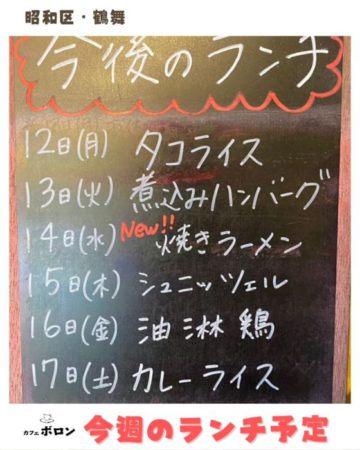 昭和区・鶴舞
今後のランチ
12日(月) タコライス
13日(火) 煮込みハンバーグ
New!!
14日(水) 焼きラーメン
15日(木) シュニッツェル
16日(金) 油淋鶏
17日(土) カレーライス
カフェ ボロン
今週のランチ予定